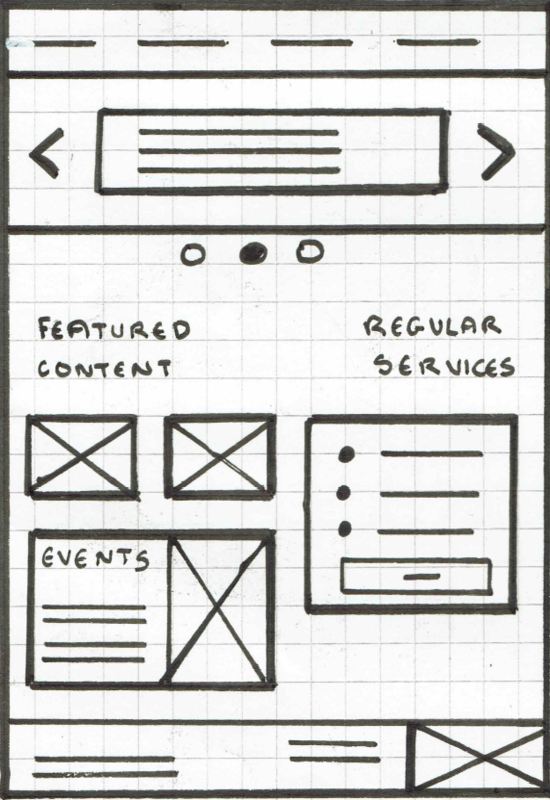 FEATURED
CONTENT
REGULAR
SERVICES
EVENTS